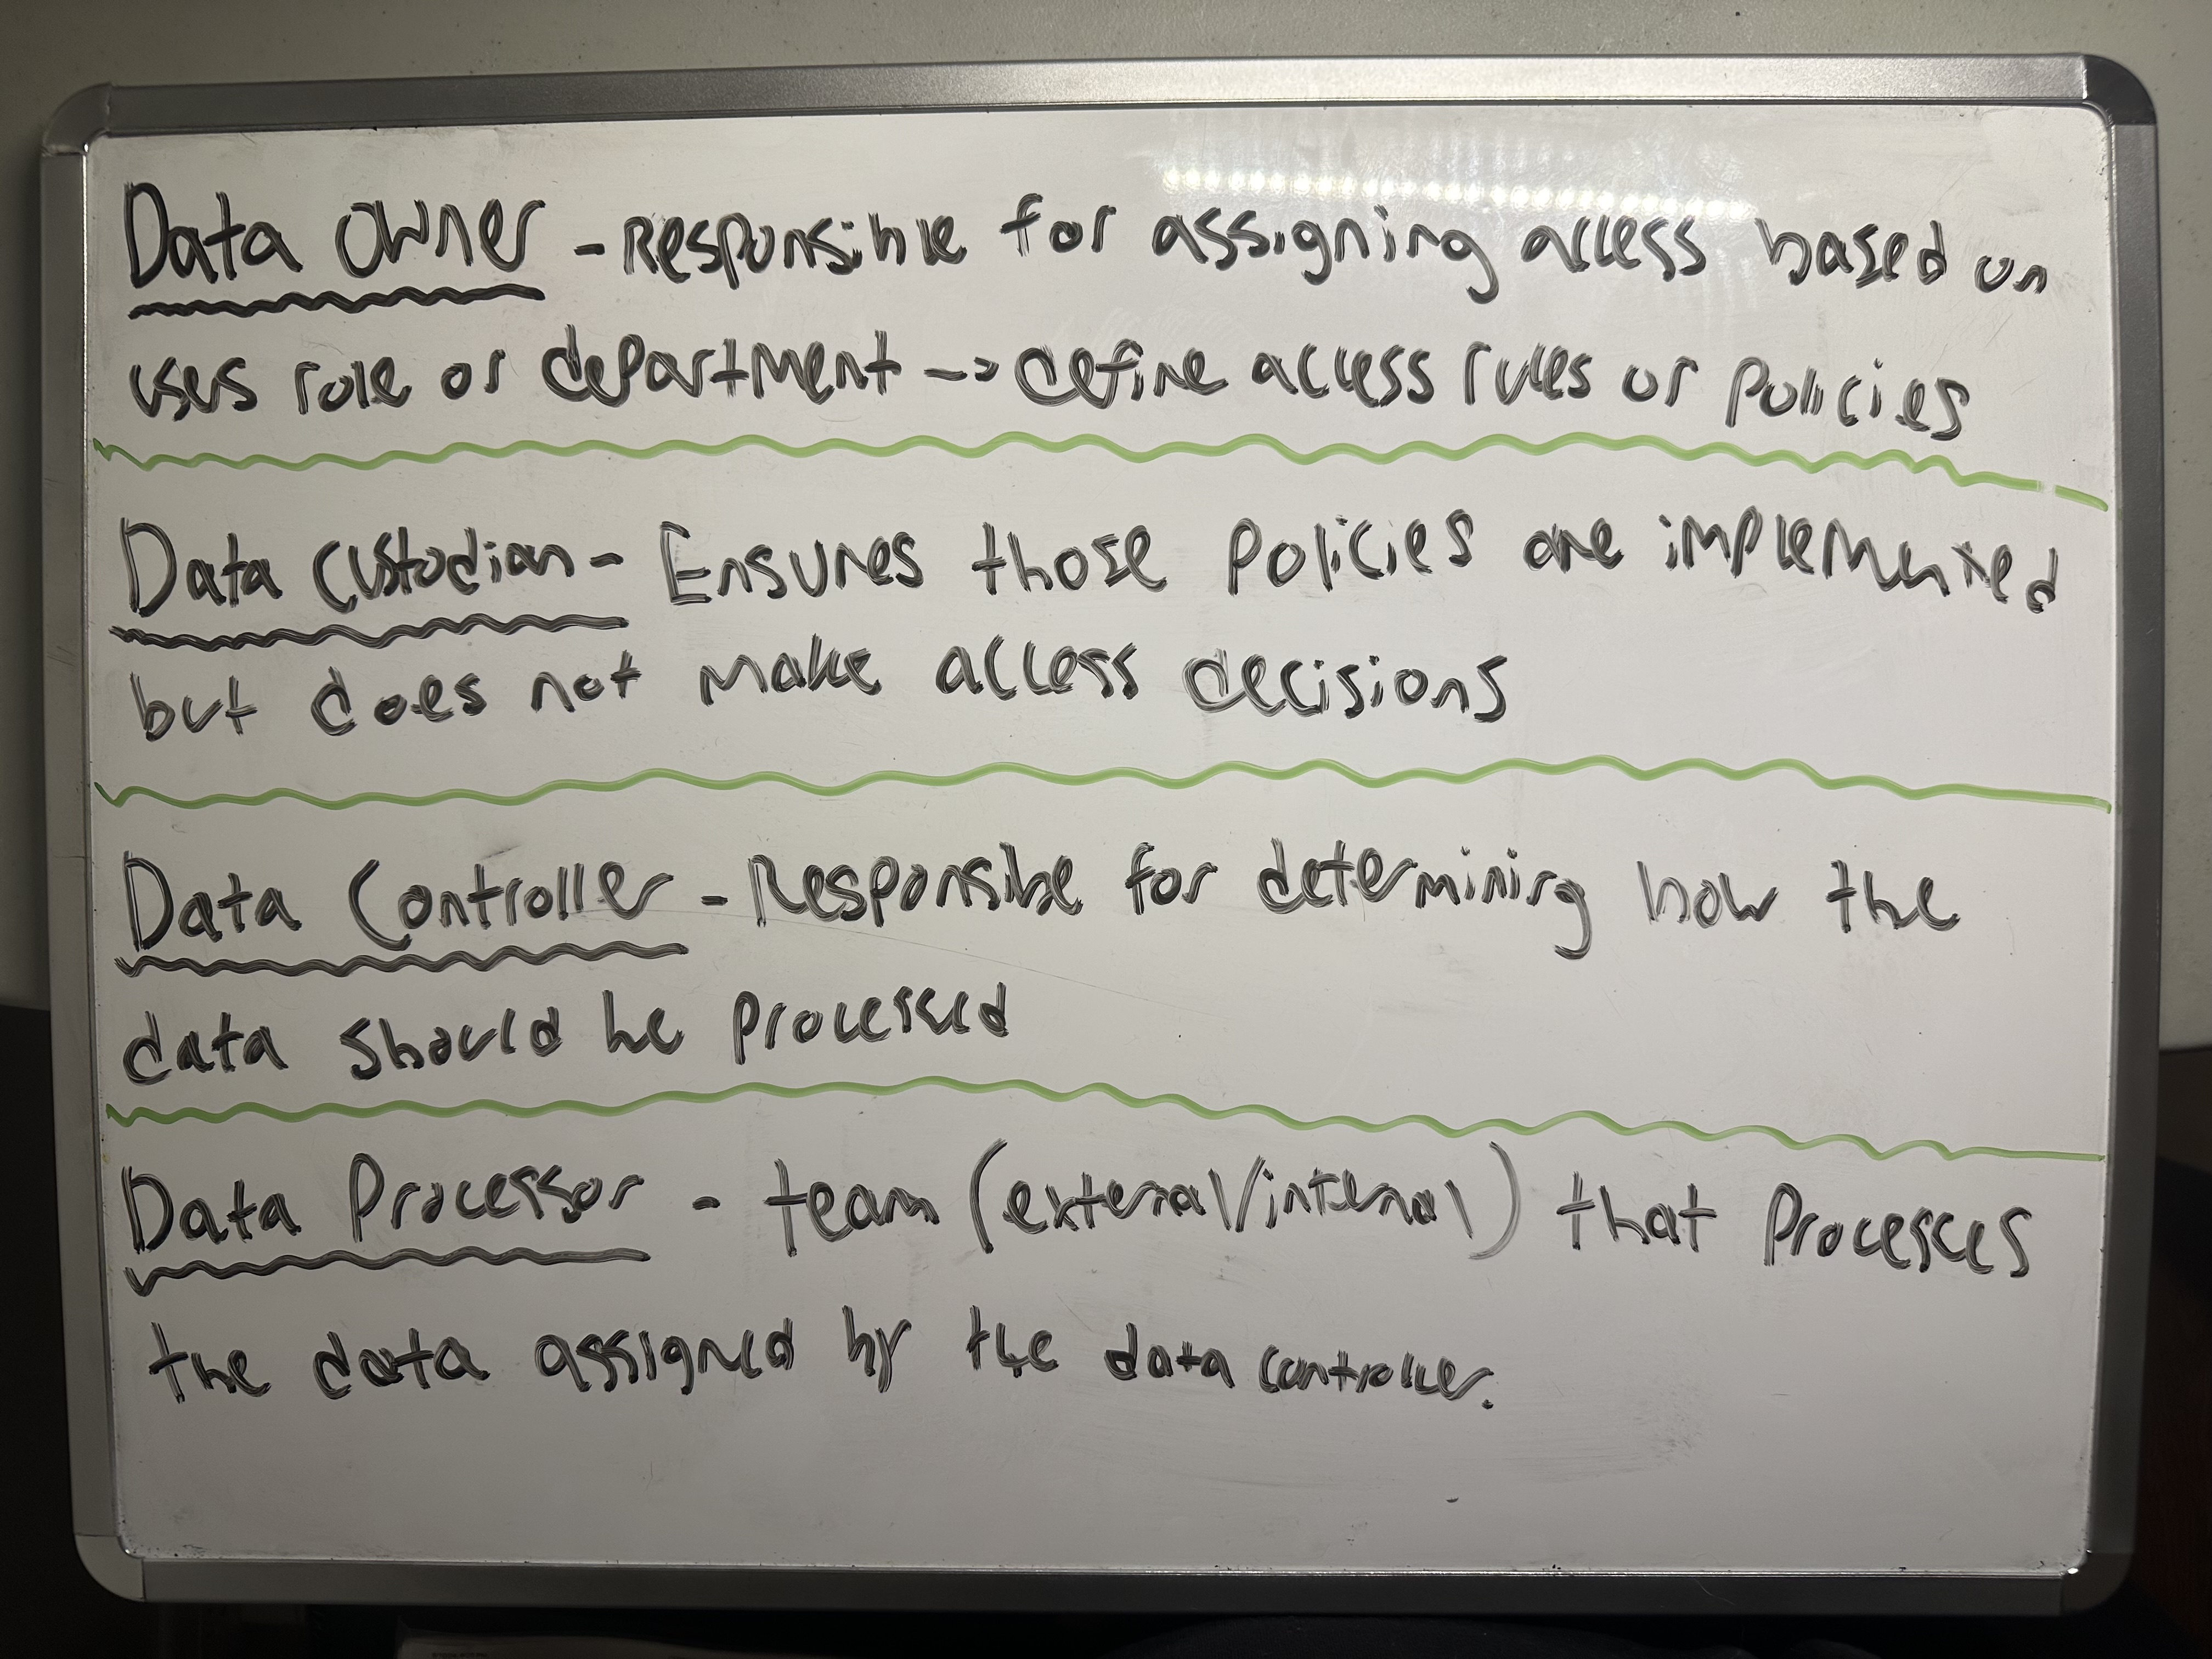 Data Owner - Responsible for assigning access based on
uses role or department -> define access rules or policies
Data Custodian - Ensures those policies are implemented
but does not make access decisions
Data Controller - Responsible for determining how the
data should be processed
Data Processor - team (external/internal) that processes
the data assigned by the data controller.